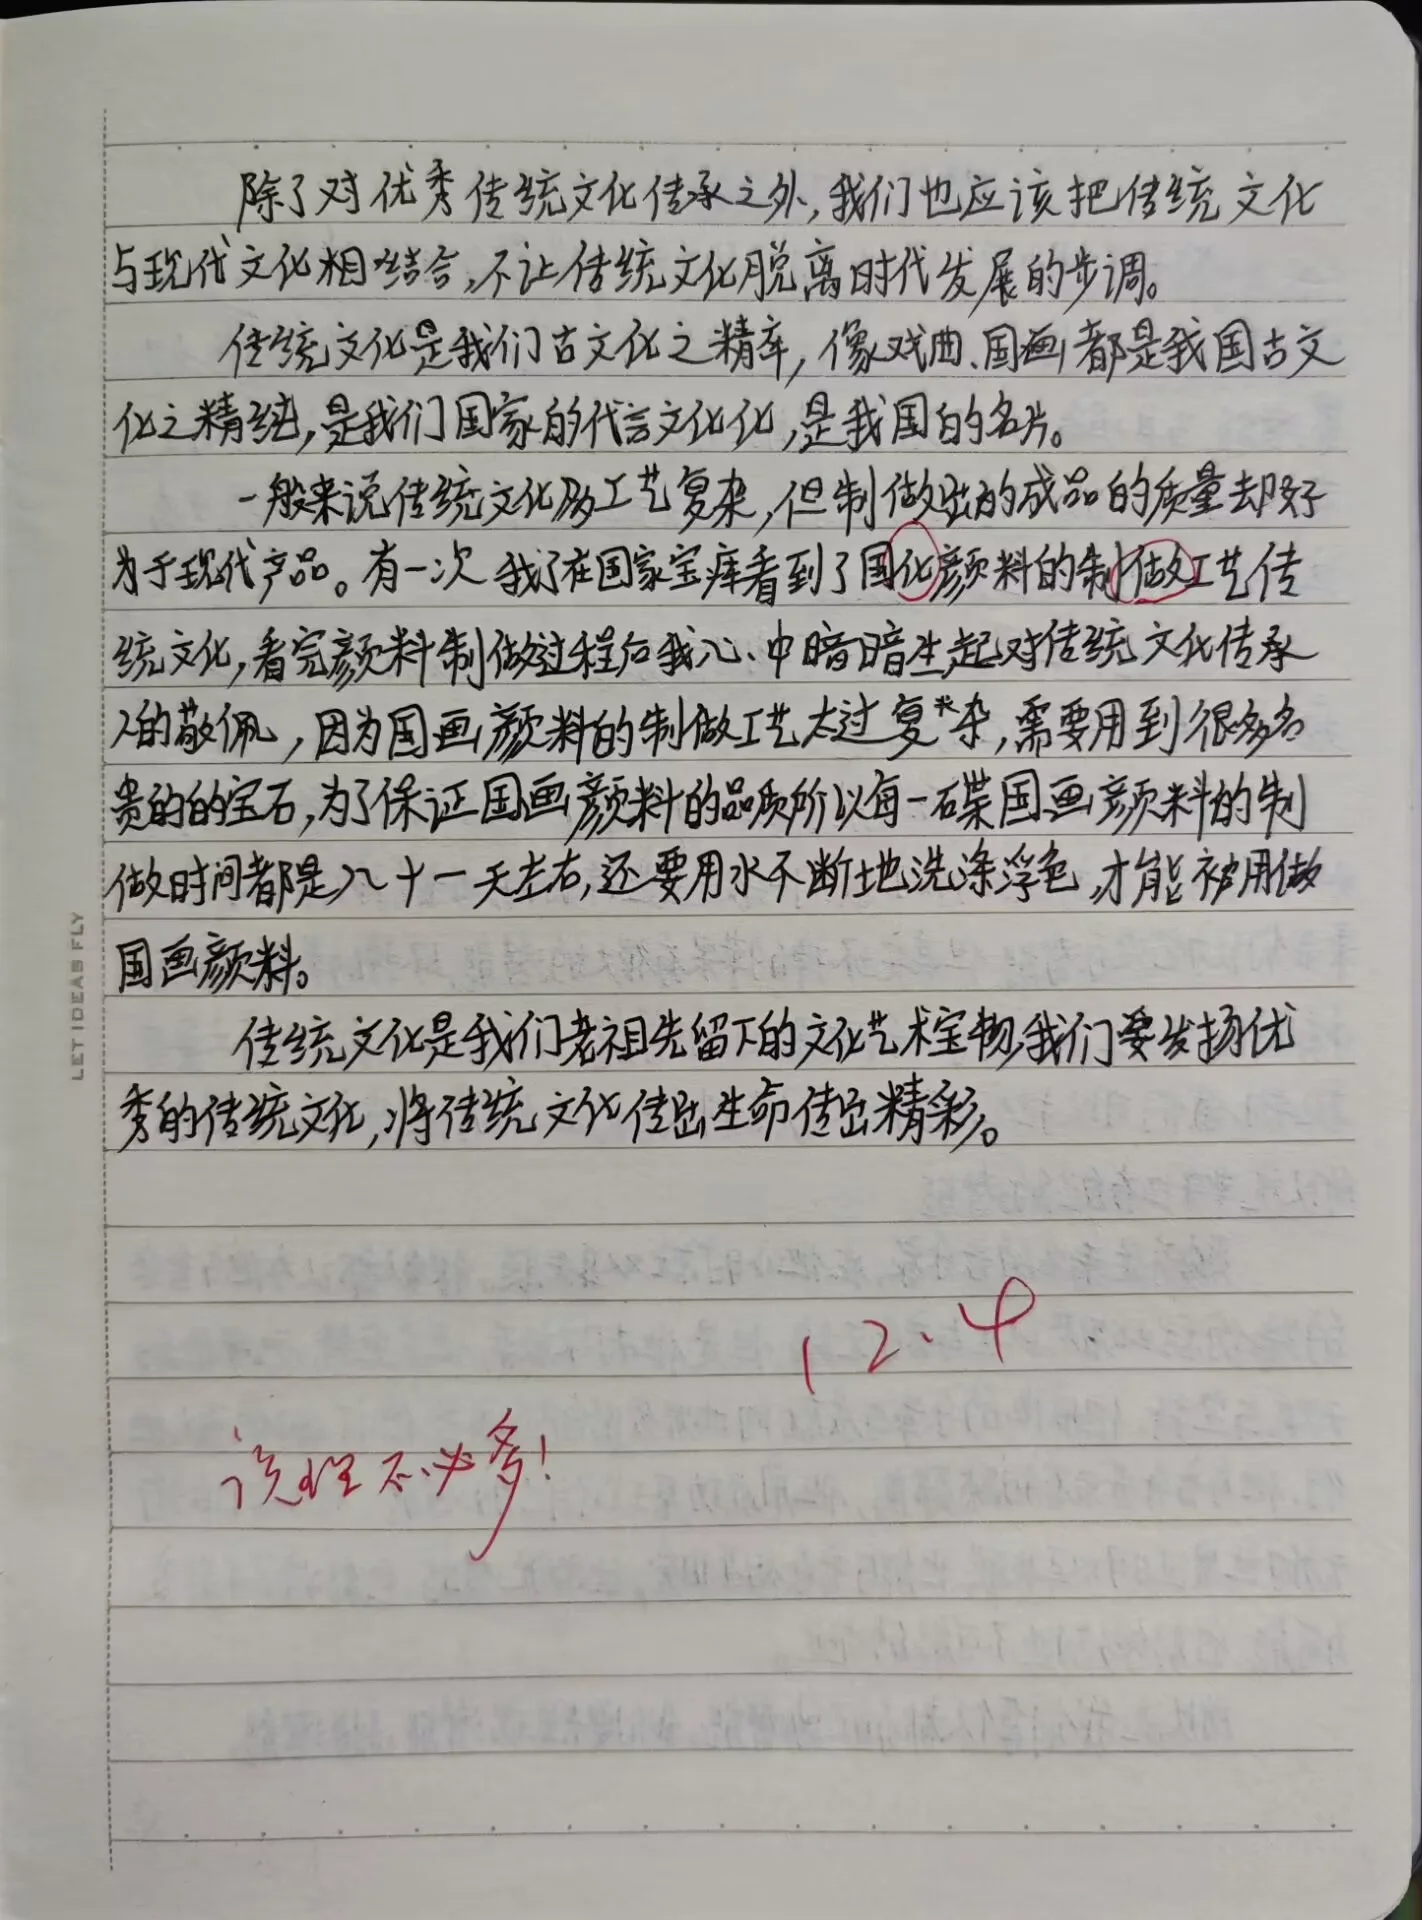 除了对优秀传统文化传承之外,我们也应该把传统文化
与现代文化相结合,不让传统文化脱离时代发展的步调。
传统文化是我们古文化之精卒,像戏曲、国画都是我国古文
化之精纯,是我们国家的代言文化化,是我国的名片。
一般来说传统文化多工艺复杂,但制做出的成品的质量却好
为于现代产品。有一次我了在国家宝库看到了国化颜料的制做工艺传
统文化,看完颜料制做过程后我心中暗暗生起对传统文化传承
人的敬佩,因为国画颜料的制做工艺太过复杂,需要用到很多名
贵的的宝石,为了保证国画颜料的品质所以每一碟国画颜料的制
做时间都是八十一天左右,还要用水不断地洗涤浮色,才能被用做
国画颜料。
传统文化是我们老祖先留下的文化艺术宝物,我们要发扬优
秀的传统文化,将传统文化传出生命传出精彩。
12.4
说理不必多!
LET IDEAS FLY